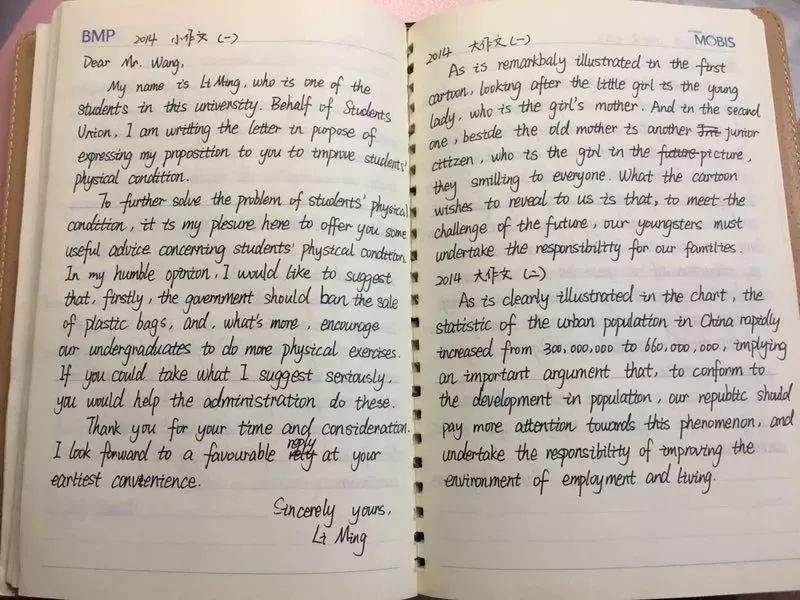 BMP 2014 小作文(一)
Dear Mr. Wang,
My name is Li Ming, who is one of the
students in this university. Behalf of Students
Union, I am writting the letter in purpose of
expressing my proposition to you to improve students'
physical condition.
To further solve the problem of students' physical
condition, it is my plesure here to offer you some
useful advice concerning students' physical condition.
In my humble opinion, I would like to suggest
that, firstly, the government should ban the sale
of plastic bags, and, what's more, encourage
our undergraduates to do more physical exercises.
If you could take what I suggest seriously,
you would help the administration do these.
Thank you for your time and consideration.
I look forward to a favourable reply at your
earliest convenience.
Sincerely yours,
Li Ming
MOBIS
2014 大作文(一)
As is remarkbaly illustrated in the first
cartoon, looking after the little girl is the young
lady, who is the girl's mother. And in the second
one, beside the old mother is another junior
citizen, who is the girl in the future picture,
they smilling to everyone. What the cartoon
wishes to reveal to us is that, to meet the
challenge of the future, our youngsters must
undertake the responsibility for our families.
2014 大作文(二)
As is clearly illustrated in the chart, the
statistic of the urban population in China rapidly
increased from 300,000,000 to 660,000,000, implying
an important argument that, to conform to
the development in population, our republic should
pay more attention towards this phenomenon, and
undertake the responsibility of improving the
environment of employment and living.